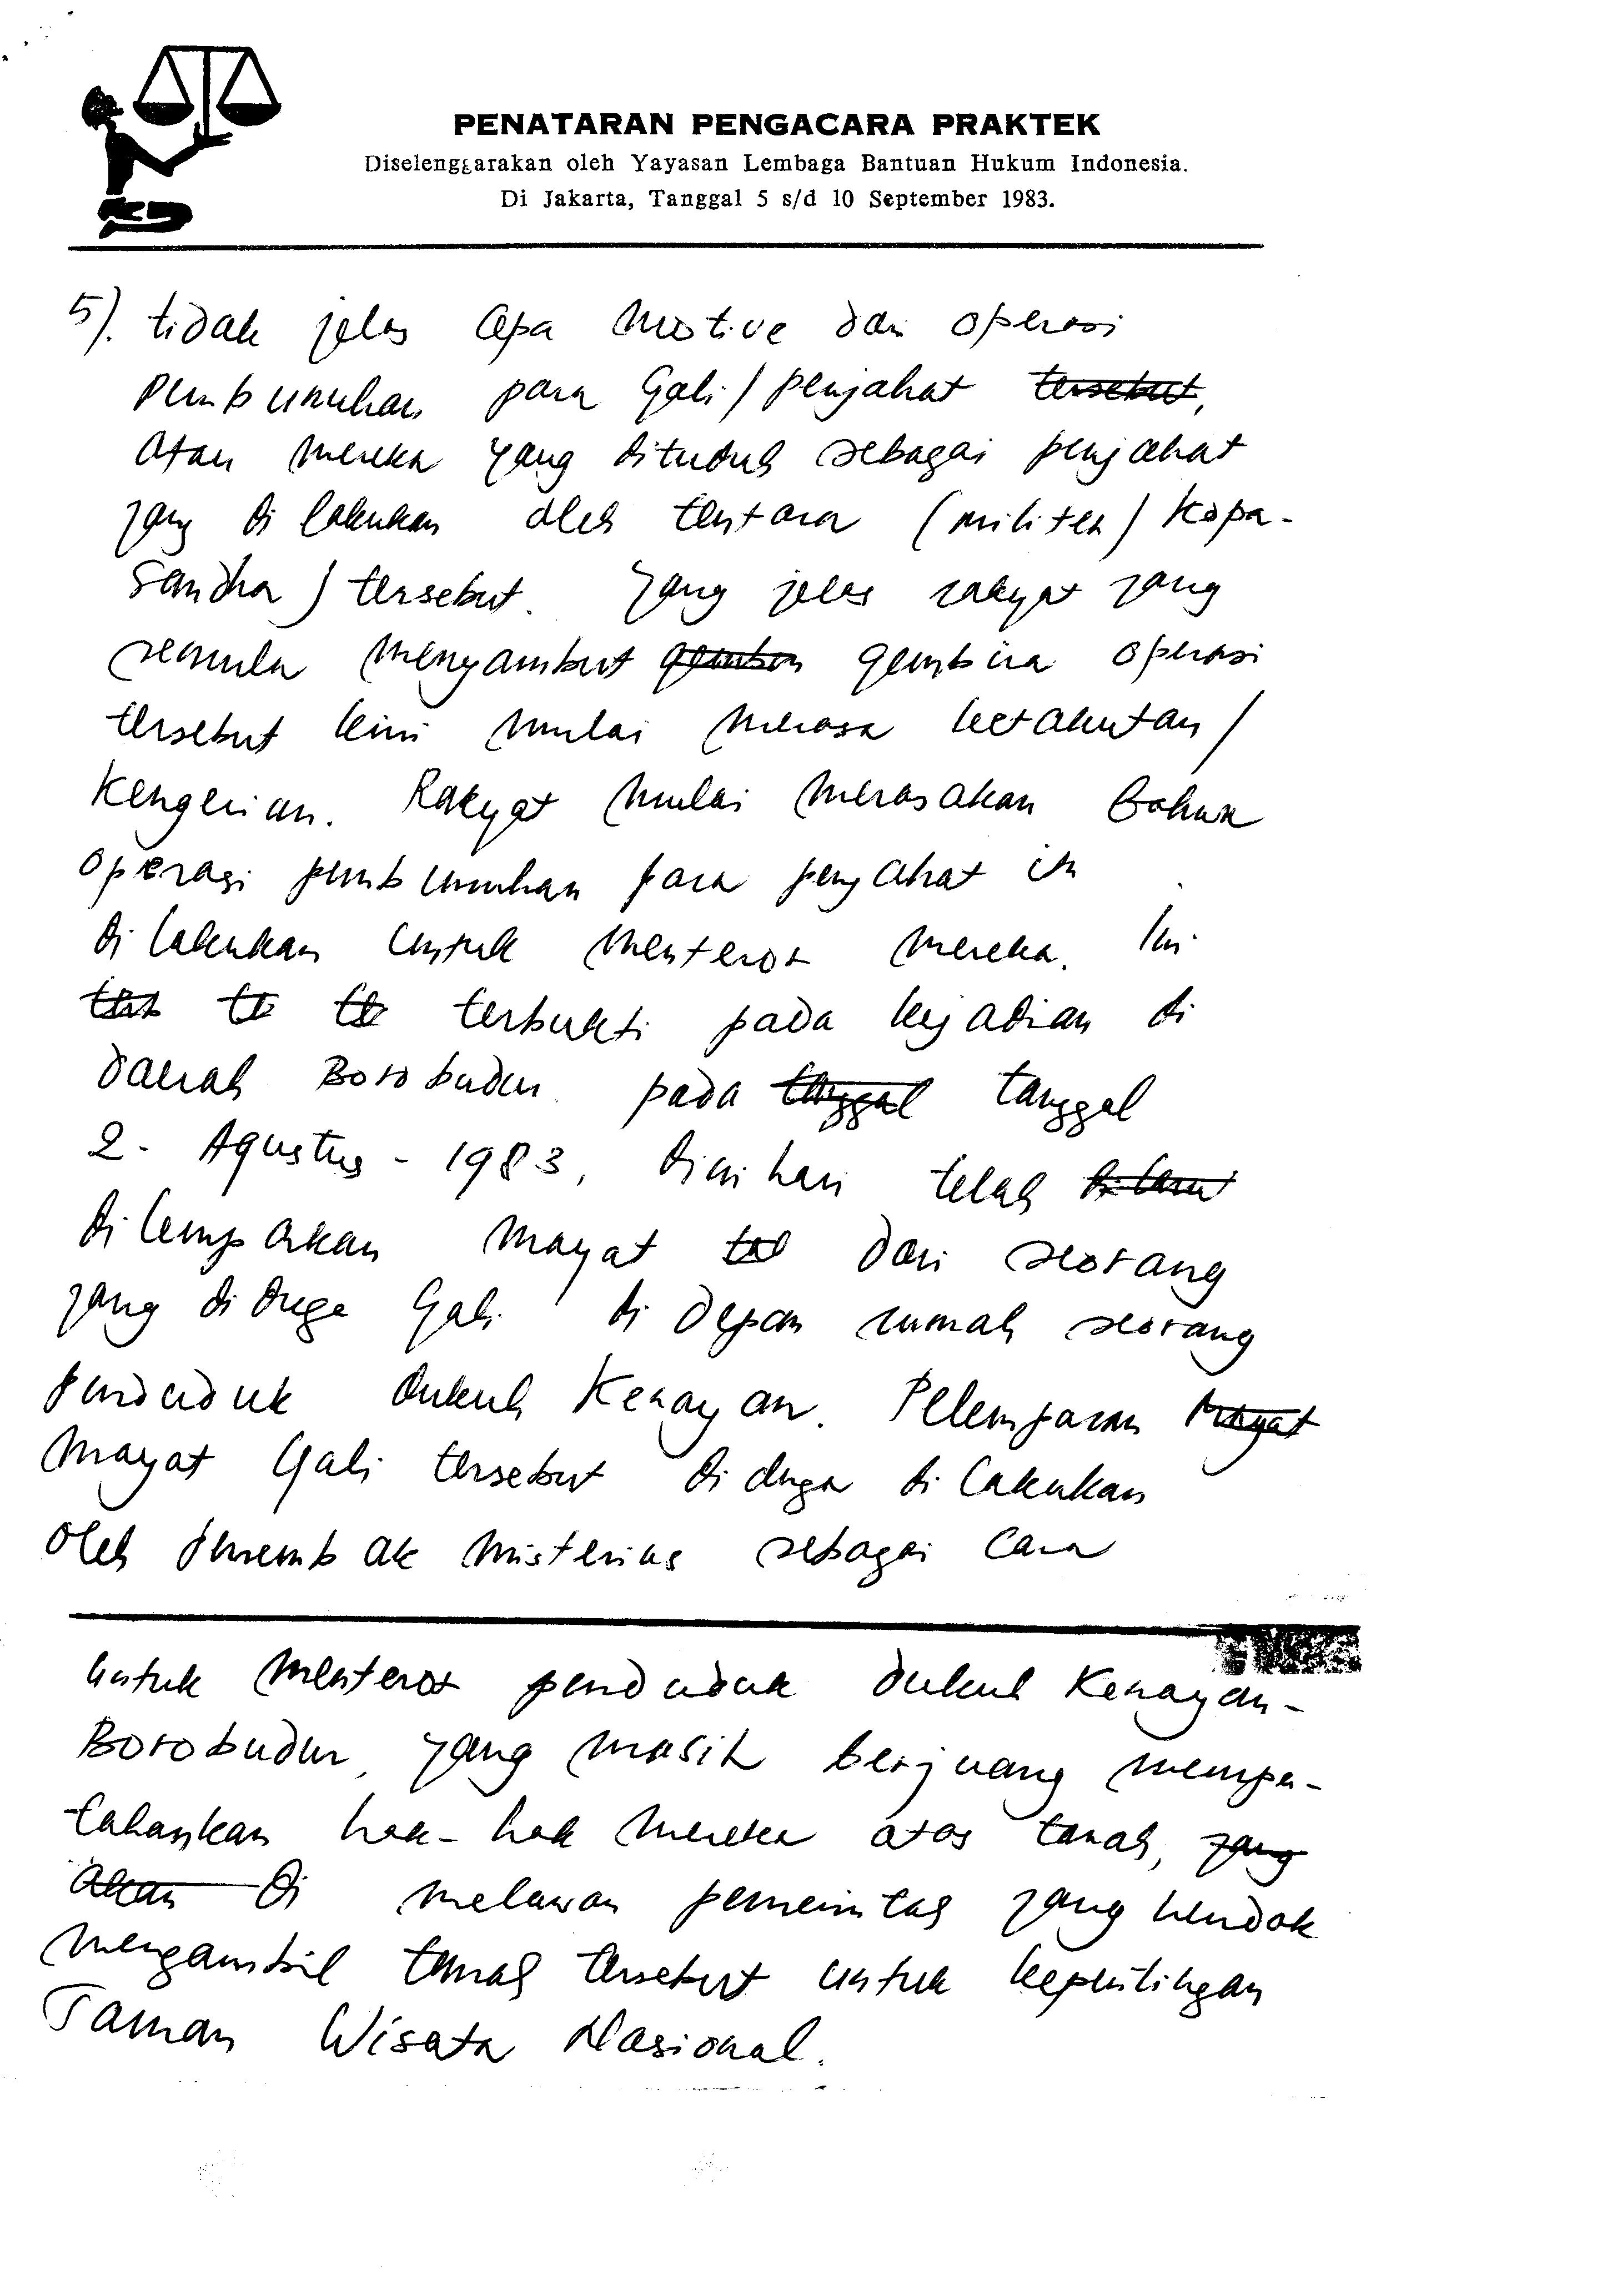 PENATARAN PENGACARA PRAKTEK
Diselenggarakan oleh Yayasan Lembaga Bantuan Hukum Indonesia.
Di Jakarta, Tanggal 5 s/d 10 September 1983.
5). tidak jelas apa motive dari operasi
pembunuhan para Gali / penjahat tersebut,
atau mereka yang dituduh sebagai penjahat
yang dilakukan oleh tentara (militer / Kopa-
sandha) tersebut. Yang jelas rakyat yang
semula menyambut gembira operasi
tersebut kini mulai merasa ketakutan /
kengerian. Rakyat mulai merasakan bahwa
operasi pembunuhan para penjahat itu
dilakukan untuk menteror mereka. Ini
terbukti pada kejadian di
daerah Borobudur pada tanggal tanggal
2 - Agustus - 1983, dini hari telah
dilemparkan mayat dari seorang
yang diduga Gali di depan rumah seorang
penduduk dukuh Kenayan. Pelemparan mayat
mayat Gali tersebut diduga dilakukan
oleh penembak misterius sebagai cara
untuk menteror penduduk dukuh Kenayan -
Borobudur, yang masih berjuang mempe-
tahankan hak-hak mereka atas tanah, yang
akan di melawan pemerintah yang hendak
mengambil tanah tersebut untuk kepentingan
Taman Wisata Nasional.